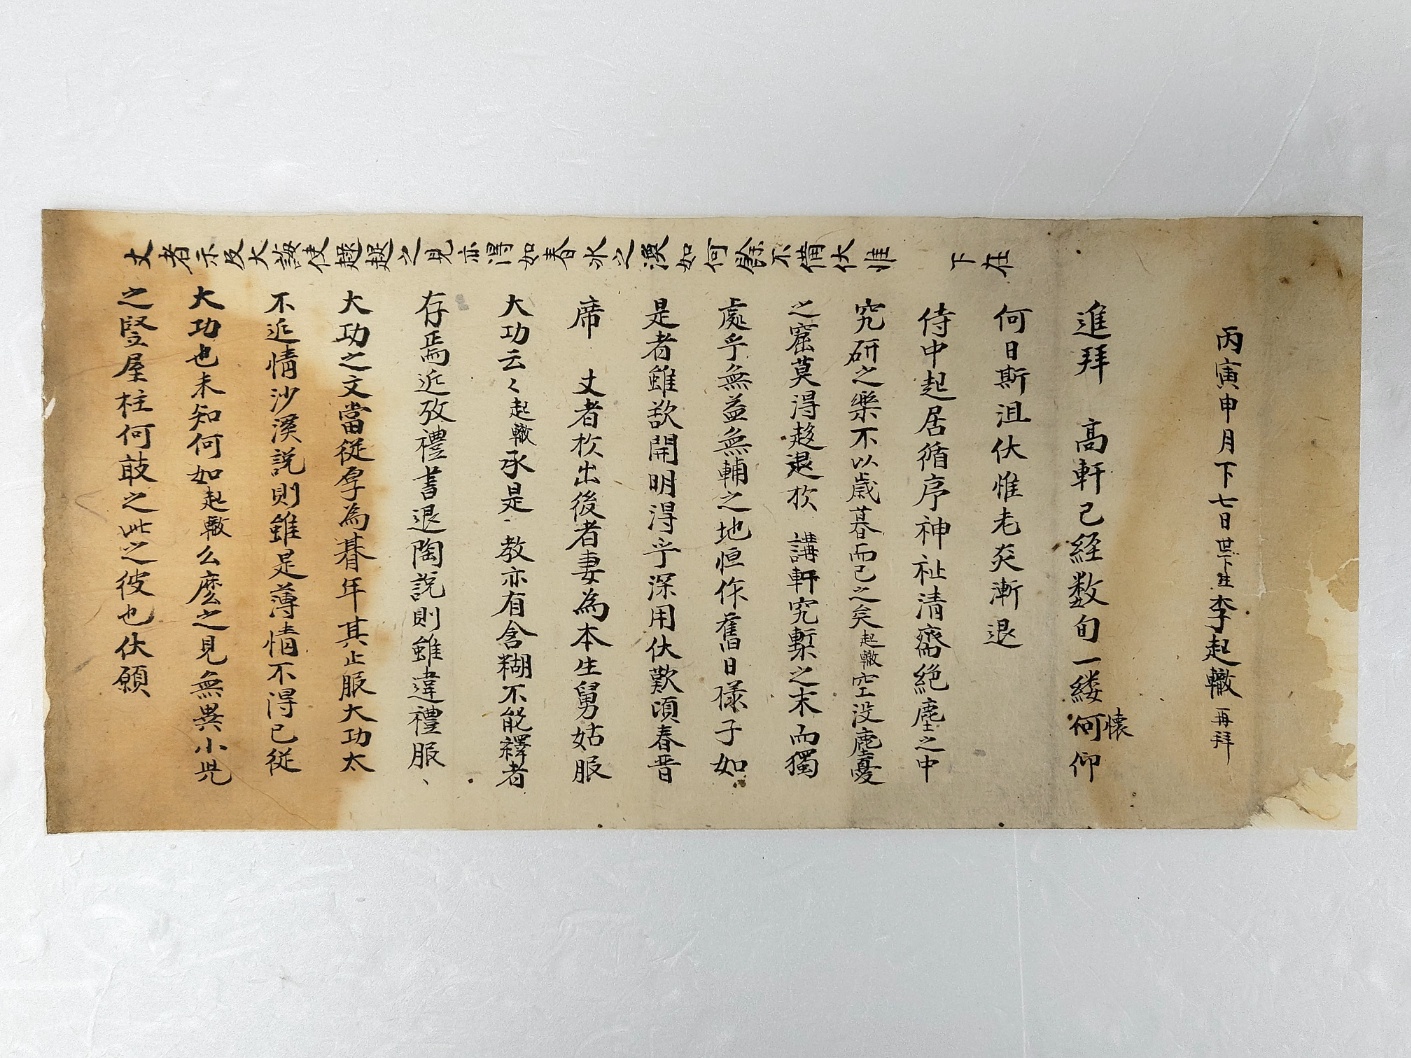 進拜 高軒已經数旬一縷懷何仰
何日斯沮伏惟老炎漸退
侍中起居循序神祉清齋絶塵之中
究研之樂不以歲暮而已之矣起轍空没塵憂
之窟莫得趍退於 講軒究槧之末而獨
處乎無益無輔之地恒作舊日樣子如
是者雖欲開明得乎深用伏歎頃春晋
席 丈者於出後者妻為本生舅姑服
大功云々起轍承是教亦有含糊不能釋者
存焉近攷禮書退陶說則雖違禮服、
大功之文當從厚為朞年其止服大功太
不近情沙溪說則雖是薄情不得已從
大功也未知何如起轍么麽之見無異小児
之竪屋柱何敢之此之彼也伏願
丈者示及大誨使趦趄之見亦得如春氷之渙如何餘不備伏惟
下在
丙寅申月下七日世下生李起轍再拜